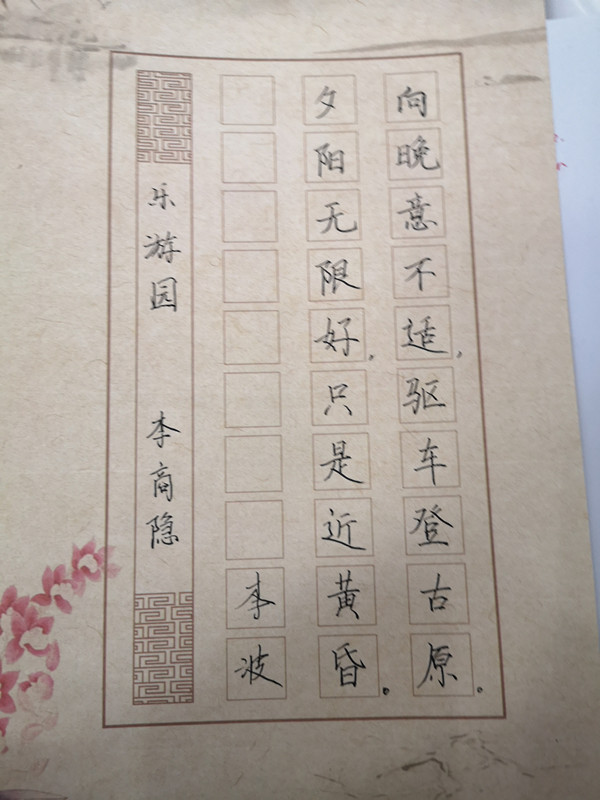 向晚意不适，驱车登古原。
夕阳无限好，只是近黄昏。
李波
乐游园 李商隐